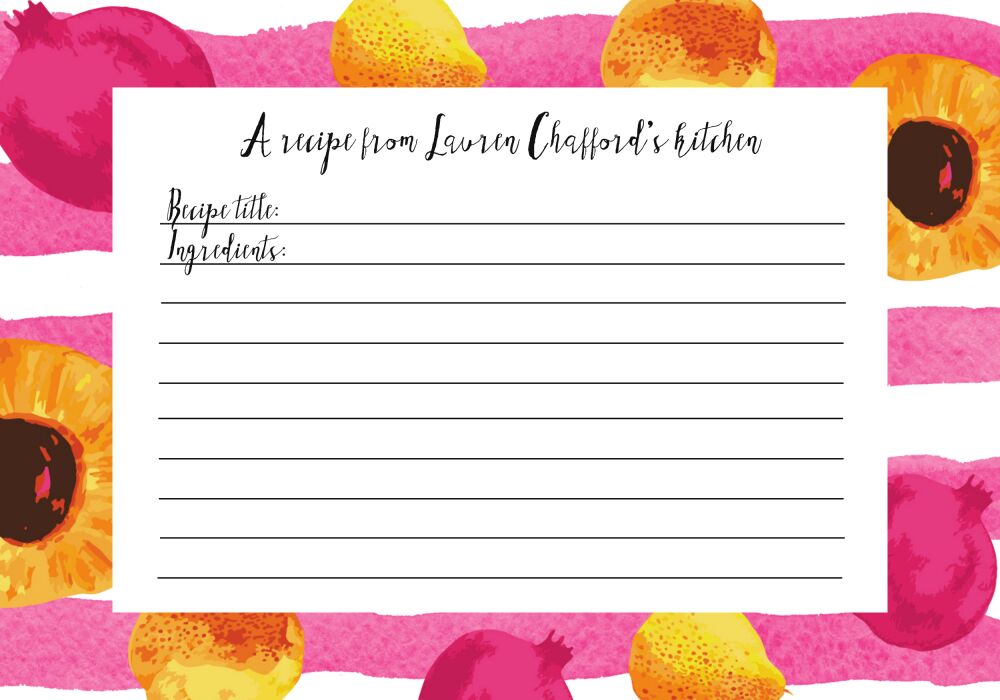 A recipe from Lauren Chafford's kitchen
Recipe title:
Ingredients: